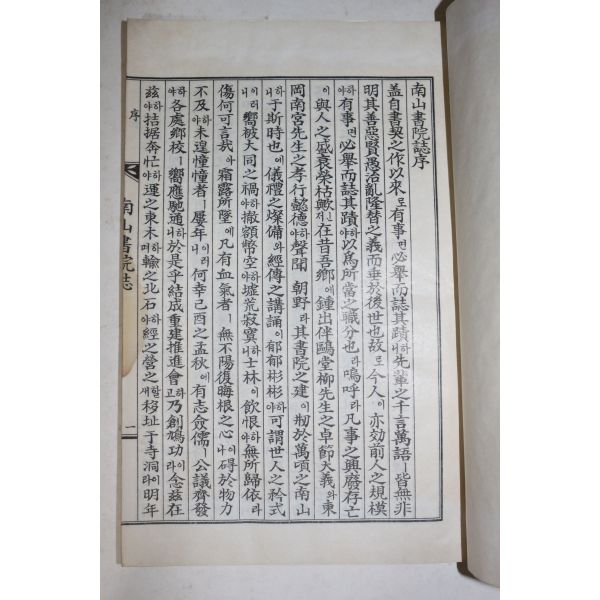 南山書院誌序
盖自書契之作以來로有事면必擧而誌其蹟하니先輩之千言萬語ㅣ皆無非
明其善惡賢愚治亂隆替之義而垂於後世也故로今人이亦効前人之規模
하야有事면必擧而誌其蹟하야以爲所當之職分也라嗚呼라凡事之興廢存亡
이與人之盛衰榮枯歟인저在昔吾鄕에鍾出伴鷗堂柳先生之卓節大義와東
岡南宮先生之孝行懿德하야聲聞 朝野라其書院之建이刱於萬頃之南山
하니于斯時也에儀禮之燦備와經傳之講誦이郁郁彬彬하야可謂世人之矜式
이러니嚮被大同之禍하야撤額幣空하야墟荒寂寞하니士林이飮恨하야無所歸依라
傷何可言哉아霜露所墜에凡有血氣者ㅣ無不陽復晦根之心이나碍於物力
不及하야未遑憧憧者ㅣ屢年이러니何幸己酉之孟秋에有志僉儒ㅣ公議齊發
하야各處鄕校ㅣ嚮應馳通하니於是乎結成重建推進會하고乃創鳩功이라念玆在
玆하야拮据奔忙하야運之東木하며輸之北石하야經之營之할새移址于寺洞이라明年
序
南山書院誌
一